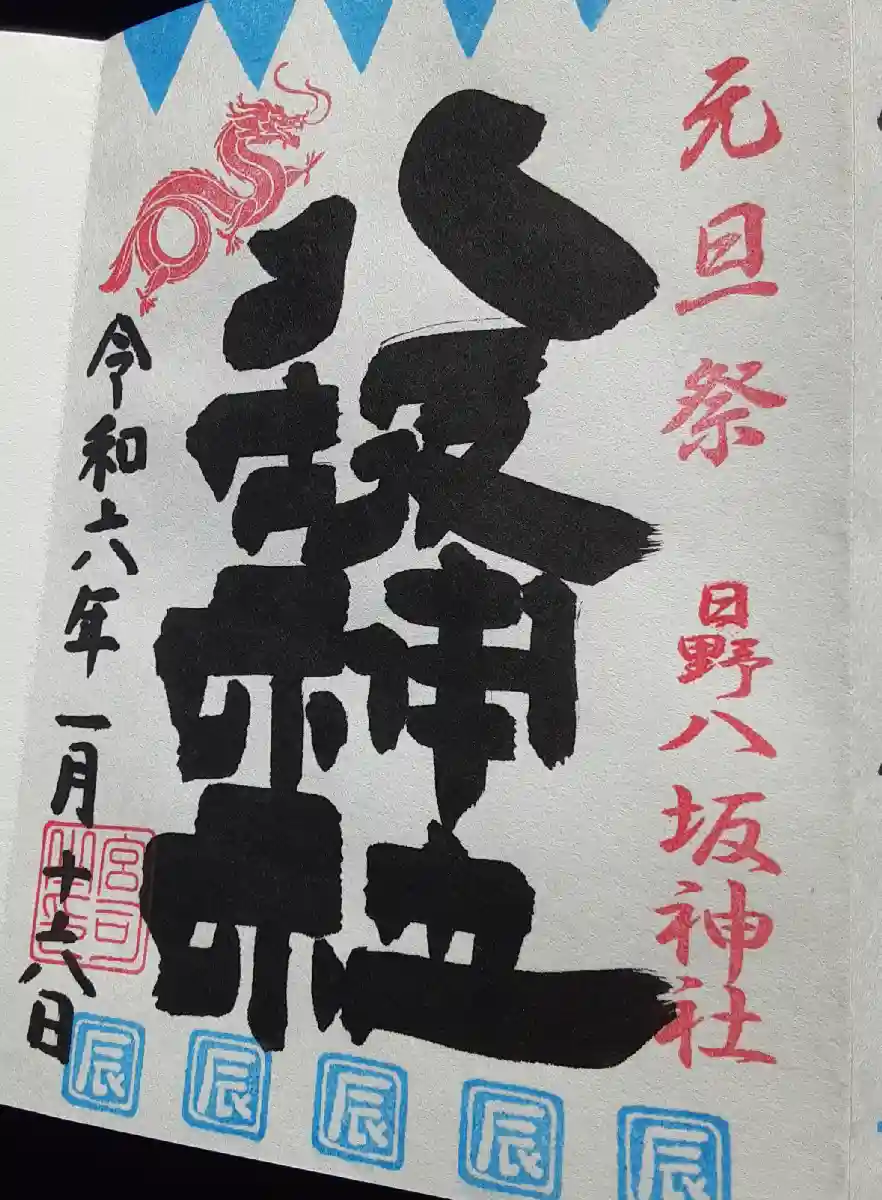 元旦祭 日野八坂神社
八坂神社
令和六年一月十六日
宮司
辰 辰 辰 辰 辰